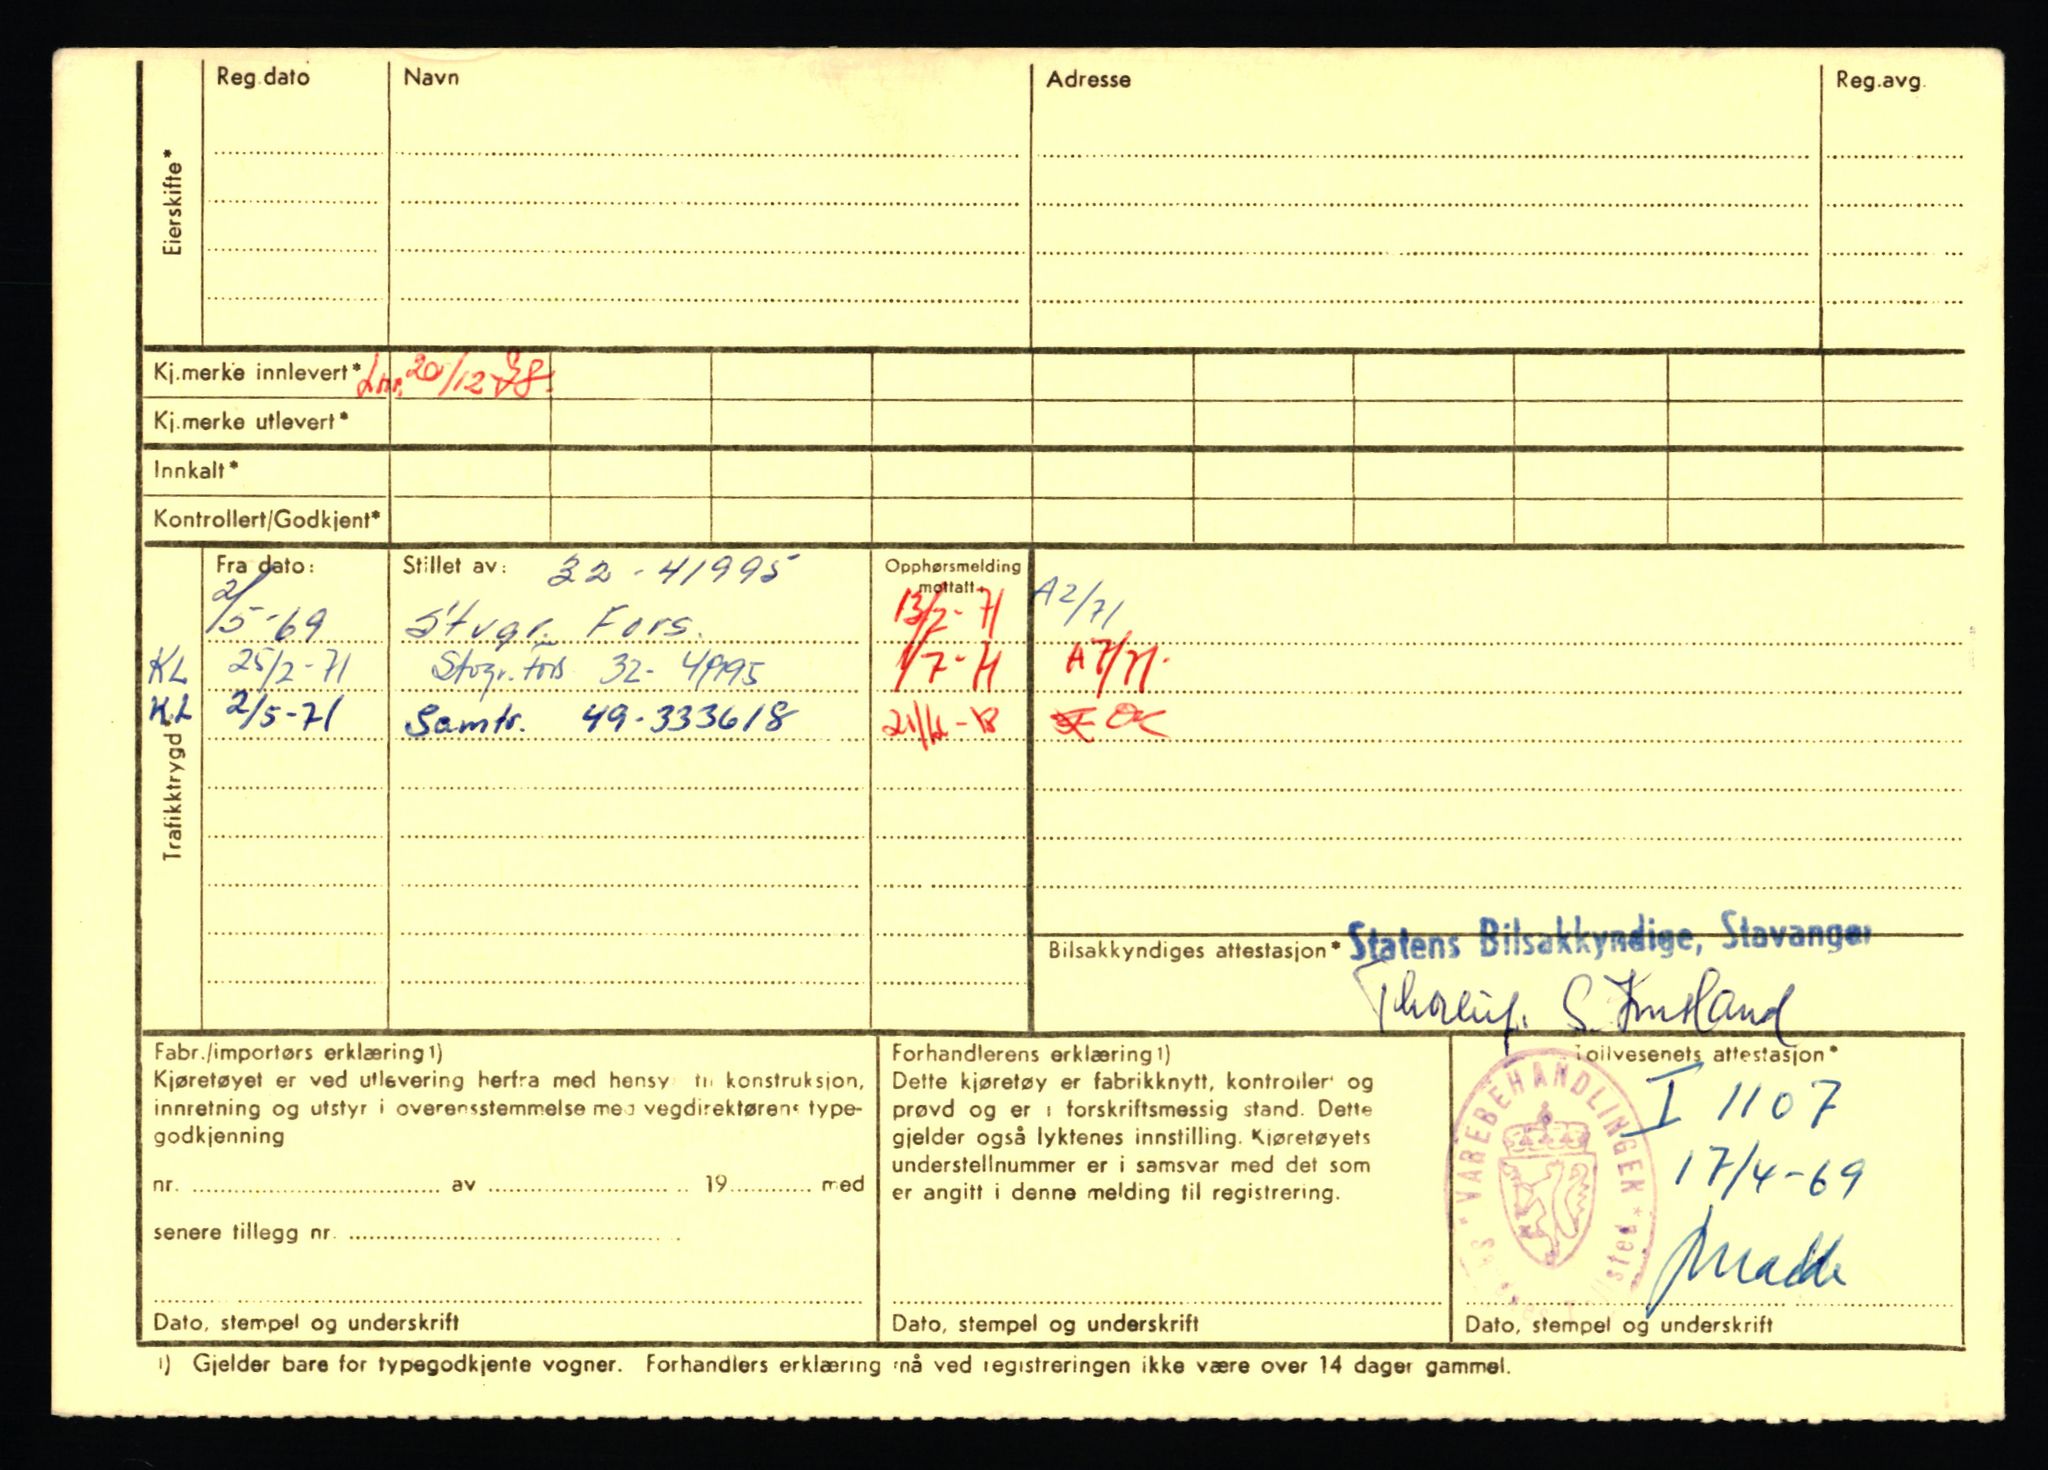 Eierskifte*
Reg.dato Navn Adresse Reg.avg.
Kj.merke innlevert* Lnr. 20/12-78.
Kj.merke utlevert*
Innkalt*
Kontrollert/Godkjent*
Trafikktrygd
Fra dato: Stillet av: 32-41995 Opphørsmelding
mottatt
2/5-69 Stvgr. Fors. 13/2-71 A2/71
KL 25/2-71 Stvgr. fors 32-41995 1/7-71 A7/71.
KL 2/5-71 Samtr. 49-333618 21/12-78 OK
Bilsakkyndiges attestasjon* Statens Bilsakkyndige, Stavanger
Fabr./importørs erklæring1)
Kjøretøyet er ved utlevering herfra med hensyn til konstruksjon,
innretning og utstyr i overensstemmelse med vegdirektørens type-
godkjenning
nr. av 19 med
senere tillegg nr.
Dato, stempel og underskrift
Forhandlerens erklæring1)
Dette kjøretøy er fabrikknytt, kontrollert og
prøvd og er i forskriftsmessig stand. Dette
gjelder også lyktenes innstilling. Kjøretøyets
understellnummer er i samsvar med det som
er angitt i denne melding til registrering.
Dato, stempel og underskrift
Tollvesenets attestasjon*
VAREBEHANDLINGEN
I 1107
17/4-69
Dato, stempel og underskrift
1) Gjelder bare for typegodkjente vogner. Forhandlers erklæring må ved registreringen ikke være over 14 dager gammel.